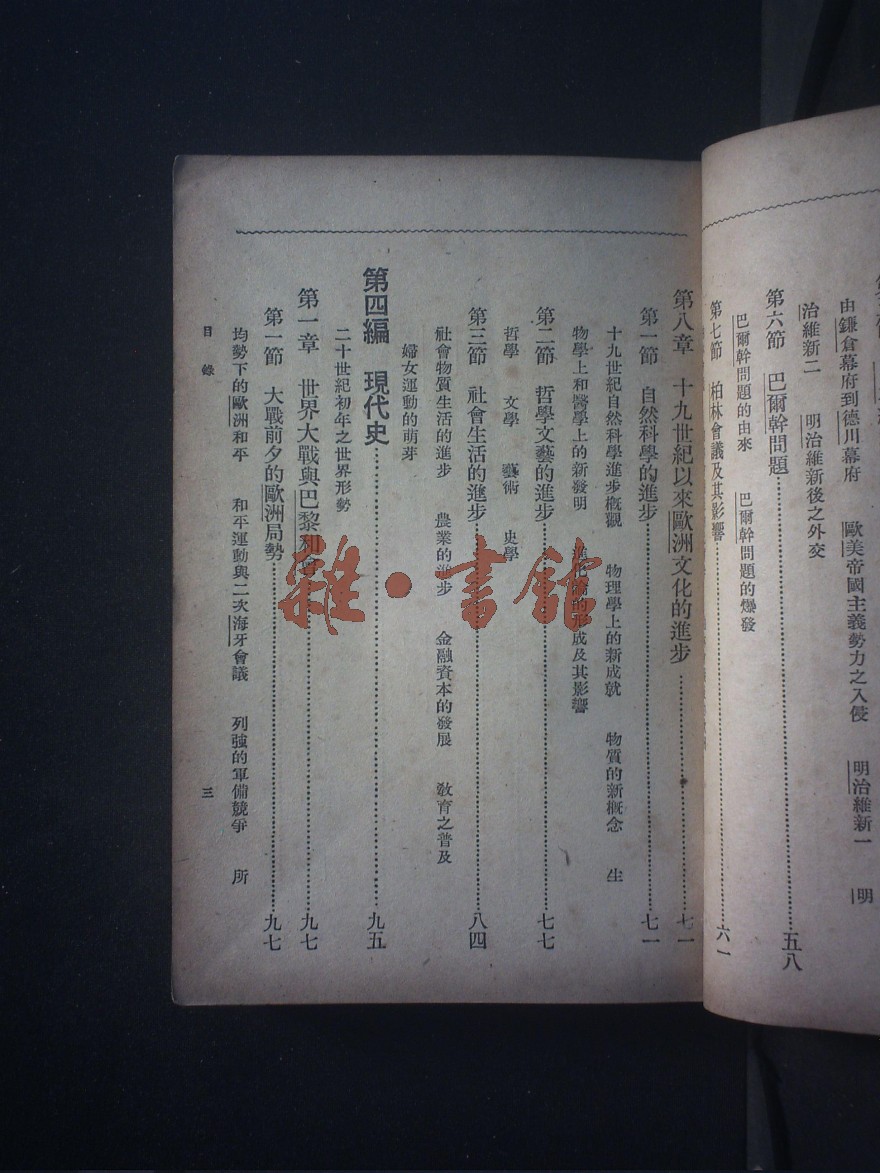 由鎌倉幕府到德川幕府　歐美帝國主義勢力之入侵　明治維新一　明
治維新二　明治維新後之外交
第六節　巴爾幹問題…………五八
巴爾幹問題的由來　巴爾幹問題的爆發
第七節　柏林會議及其影響…………六一
第八章　十九世紀以來歐洲文化的進步…………七一
第一節　自然科學的進步…………七一
十九世紀自然科學進步概觀　物理學上的新成就　物質的新概念　生
物學上和醫學上的新發明　進化論的形成及其影響
第二節　哲學文藝的進步…………七七
哲學　文學　藝術　史學
第三節　社會生活的進步…………八四
社會物質生活的進步　農業的進步　金融資本的發展　教育之普及
婦女運動的萌芽
第四編　現代史…………九五
二十世紀初年之世界形勢
第一章　世界大戰與巴黎和會…………九七
第一節　大戰前夕的歐洲局勢…………九七
均勢下的歐洲和平　和平運動與二次海牙會議　列強的軍備競爭　所
目錄　三
雜·書館